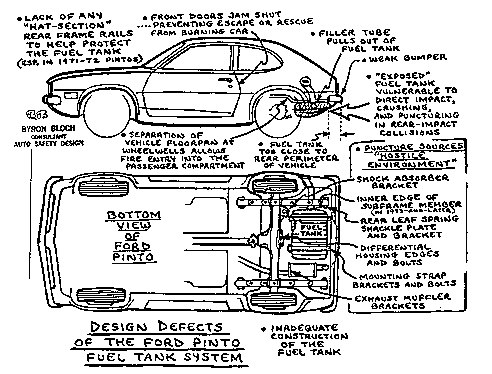 • LACK OF ANY
"HAT-SECTION"
REAR FRAME RAILS
TO HELP PROTECT
THE FUEL TANK
(ESP. IN 1971-72 PINTOS)
• FRONT DOORS JAM SHUT
PREVENTING ESCAPE OR RESCUE
FROM BURNING CAR
• FILLER TUBE
PULLS OUT OF
FUEL TANK
• WEAK BUMPER
• "EXPOSED"
FUEL TANK
VULNERABLE TO
DIRECT IMPACT,
CRUSHING,
AND PUNCTURING
IN REAR-IMPACT
COLLISIONS
BYRON BLOCH
CONSULTANT
AUTO SAFETY DESIGN
• SEPARATION OF
VEHICLE FLOORPAN AT
WHEELWELLS ALLOWS
FIRE ENTRY INTO THE
PASSENGER COMPARTMENT
• FUEL TANK
TOO CLOSE TO
REAR PERIMETER
OF VEHICLE
• PUNCTURE SOURCES
"HOSTILE
ENVIRONMENT"
SHOCK ABSORBER
BRACKET
INNER EDGE OF
SUBFRAME MEMBER
(IN 1973-AND-LATER)
REAR LEAF SPRING
SHACKLE PLATE
AND BRACKET
DIFFERENTIAL
HOUSING EDGES
AND BOLTS
MOUNTING STRAP
BRACKETS AND BOLTS
EXHAUST MUFFLER
BRACKETS
BOTTOM
VIEW OF
FORD
PINTO
FUEL
TANK
DESIGN DEFECTS
OF THE FORD PINTO
FUEL TANK SYSTEM
• INADEQUATE
CONSTRUCTION
OF THE
FUEL TANK